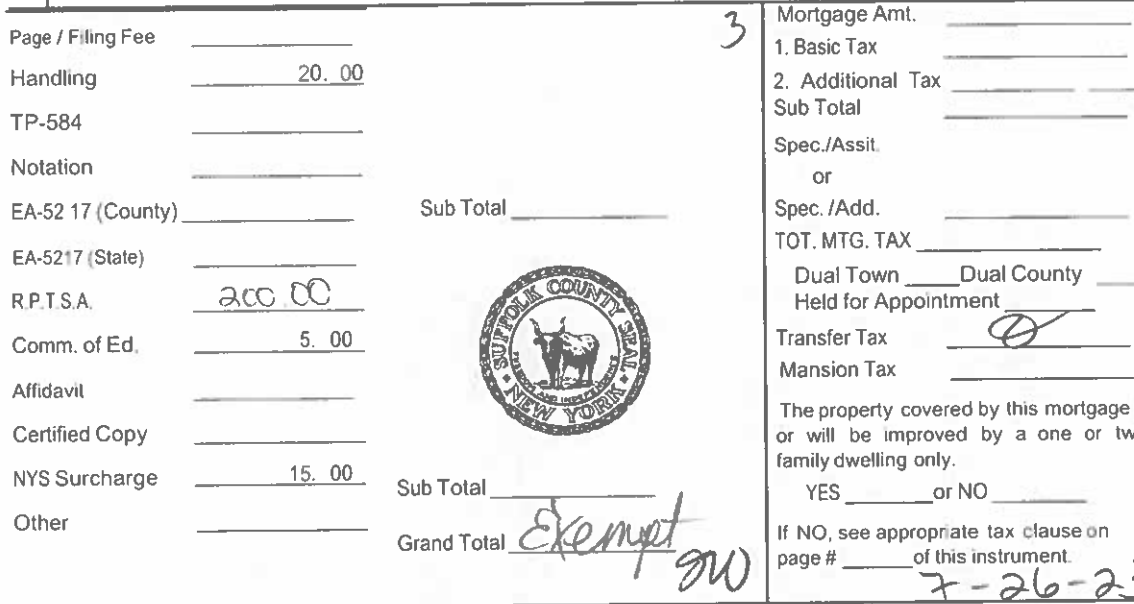 3
Page / Filing Fee
Handling 20. 00
TP-584
Notation
EA-52 17 (County)
EA-5217 (State)
R.P.T.S.A. 200.00
Comm. of Ed. 5. 00
Affidavit
Certified Copy
NYS Surcharge 15. 00
Other
Sub Total
SUFFOLK COUNTY SEAL
NEW YORK
Sub Total
Grand Total Exempt
Mortgage Amt.
1. Basic Tax
2. Additional Tax
Sub Total
Spec./Assit.
or
Spec. /Add.
TOT. MTG. TAX
Dual Town Dual County
Held for Appointment
Transfer Tax
Mansion Tax
The property covered by this mortgage
or will be improved by a one or tw
family dwelling only.
YES or NO
If NO, see appropriate tax clause on
page # of this instrument.
7-26-2